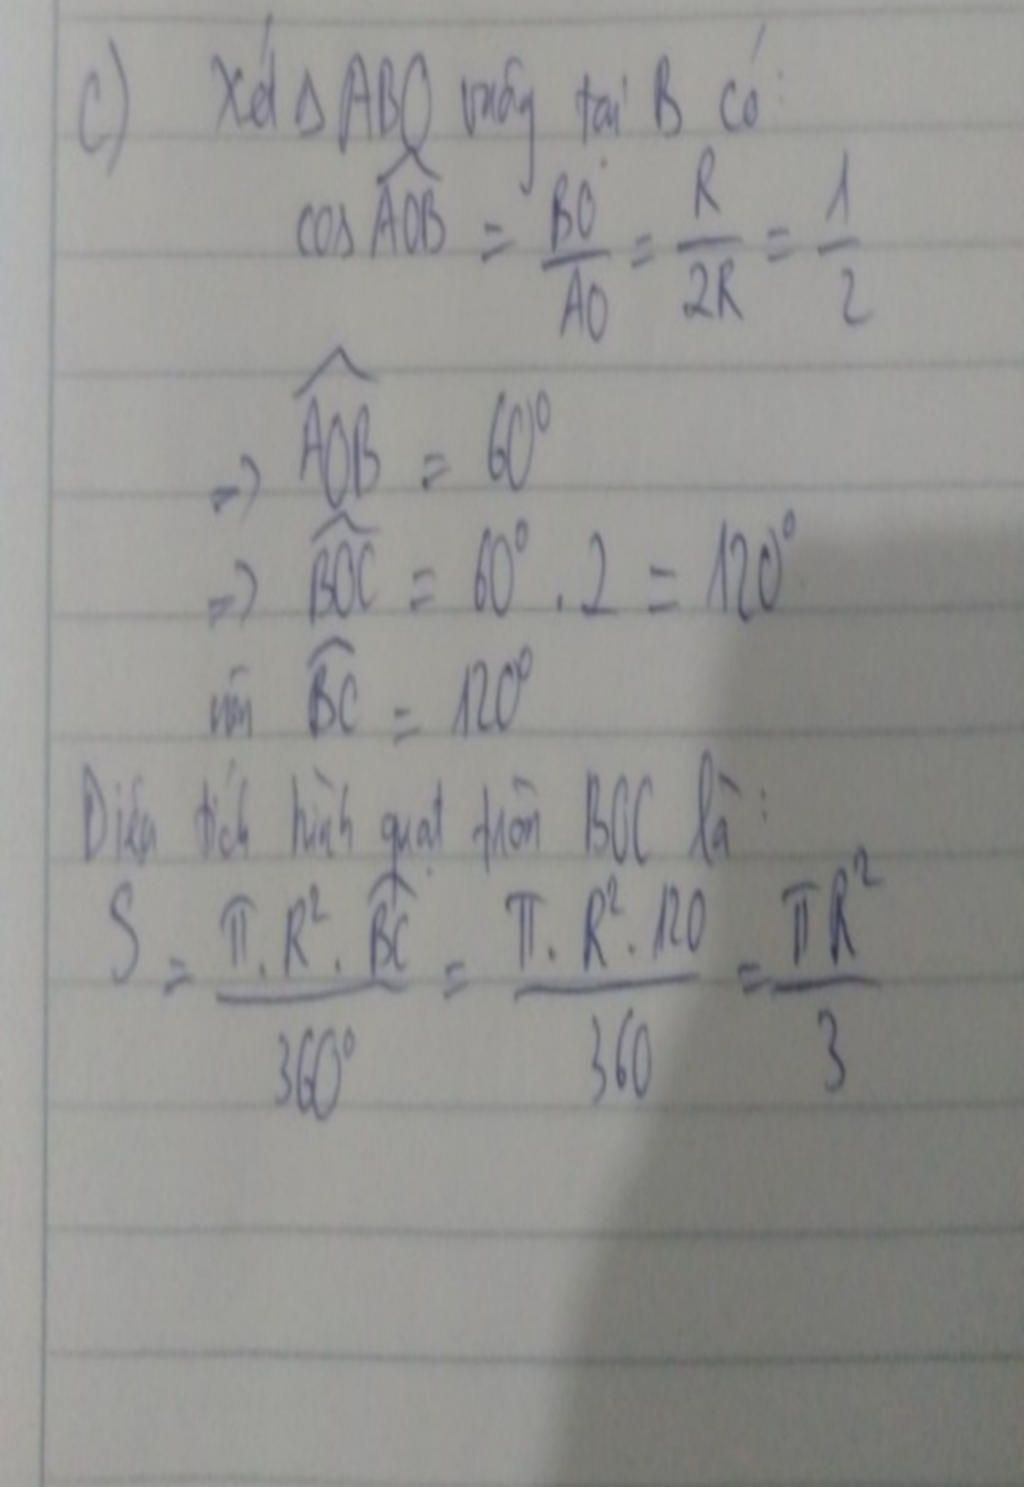 c) Xét Δ ABO vuông tại B có:
cos AOB = BO/AO = R/2R = 1/2
=> AOB = 60°
=> BOC = 60° . 2 = 120°
nên BC = 120°
Diện tích hình quạt tròn BOC là:
S = π.R².BC/360° = π.R².120/360 = πR²/3